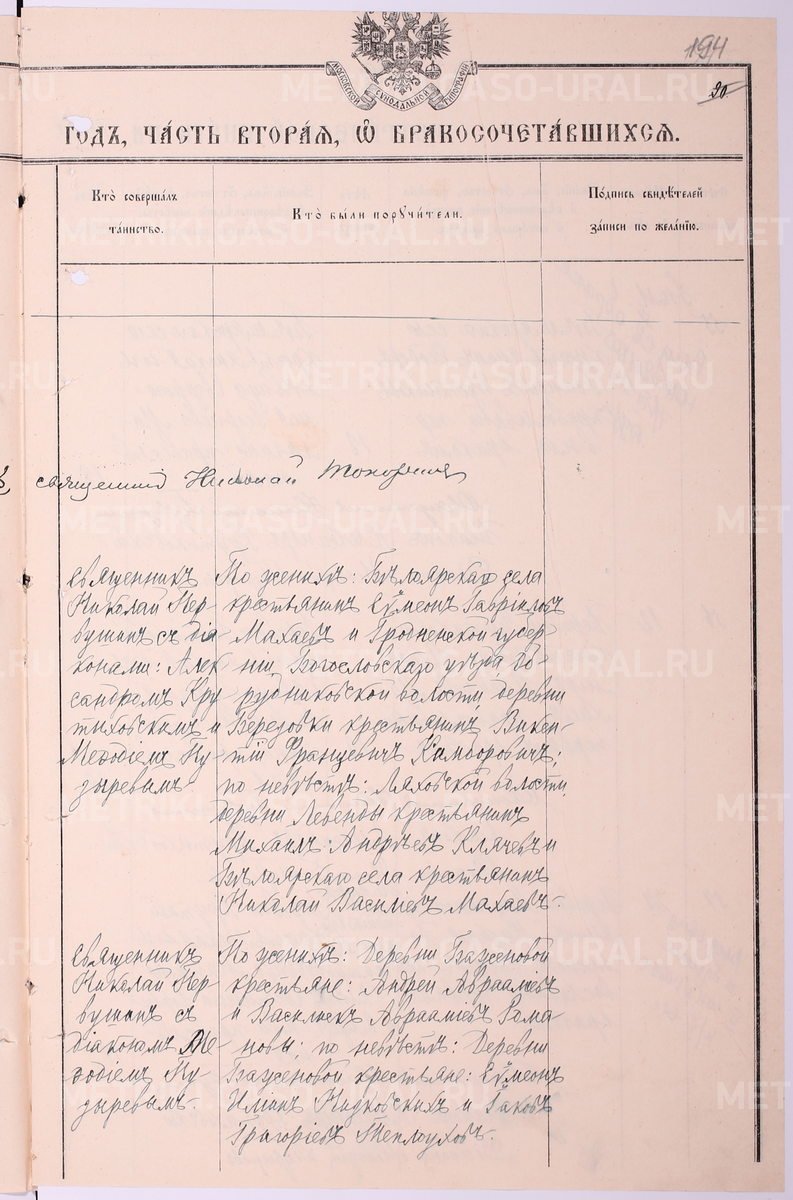 194
20
МОСКОВСКОЙ СѴНОДАЛЬНОЙ ТИПОГРАФІИ
ГОДЪ, ЧА́СТЬ ВТОРА́Я, Ѡ҆ БРАКОСОЧЕТА́ВШИХСЯ.
Кто̀ соверша́лъ
та́инство.
Кто̀ бы́ли пору́чи́тели.
По́дпись свидѣ́телей
за́писи по жела́нію.
священникъ Николай
Священникъ
Николай Пер
вушинъ съ діа
конами: Алек
сандромъ Кру
тиховскимъ и
Меѳодіемъ Пу
зыревымъ.
По женихѣ: Бѣлоярскаго села
крестьянинъ Сѵмеонъ Гавріиловъ
Махаевъ и Гродненской губер
ніи, Богословскаго уѣзда,
рудниковской волости, деревни
Бередовки крестьянинъ Викен-
тій Францевичъ;
по невѣстѣ: Ляховской волости,
деревни Левенды крестьянинъ
Михаилъ Андреевъ Клячевъ и
Бѣлоярскаго села крестьянинъ
Николай Василіевъ Махаевъ.
Священникъ
Николай Пер
вушинъ съ
діакономъ Ме
ѳодіемъ Пу
зыревымъ.
По женихѣ: Деревни Баженовой
крестьяне: Андрей Авраамiевъ
и Василискъ Авраамiевъ Рома
новы; по невѣстѣ: Деревни
Баженовой крестьяне: Сѵмеонъ
Иліинъ и Іаковъ
Григоріевъ Теплоуховъ.
METRIKI.GASO-URAL.RU